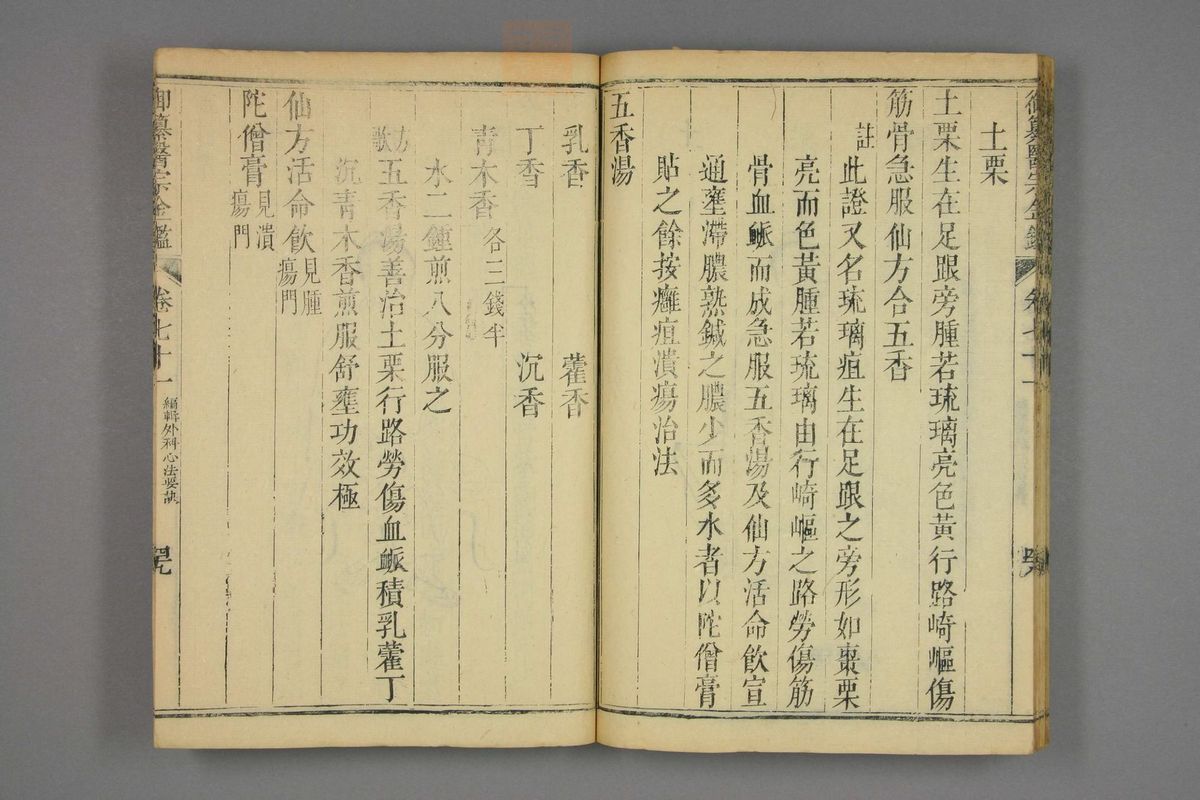 御纂醫宗金鑑 卷七十一
土栗
土栗生在足跟旁腫若琉璃亮色黃行路崎嶇傷
筋骨急服仙方合五香
註此證又名琉璃疽生在足跟之旁形如棗栗
亮而色黃腫若琉璃由行崎嶇之路勞傷筋
骨血衇而成急服五香湯及仙方活命飲宣
通壅滯膿熟鍼之膿少而多水者以陀僧膏
貼之餘按癰疽潰瘍治法
五香湯
乳香 藿香
丁香 沉香
青木香各三錢半
水二鍾煎八分服之
方歌五香湯善治土栗行路勞傷血衇積乳藿丁
沉青木香煎服舒壅功效極
仙方活命飲見腫瘍門
陀僧膏見潰瘍門
御纂醫宗金鑑 卷七十一 編輯外科心法要訣